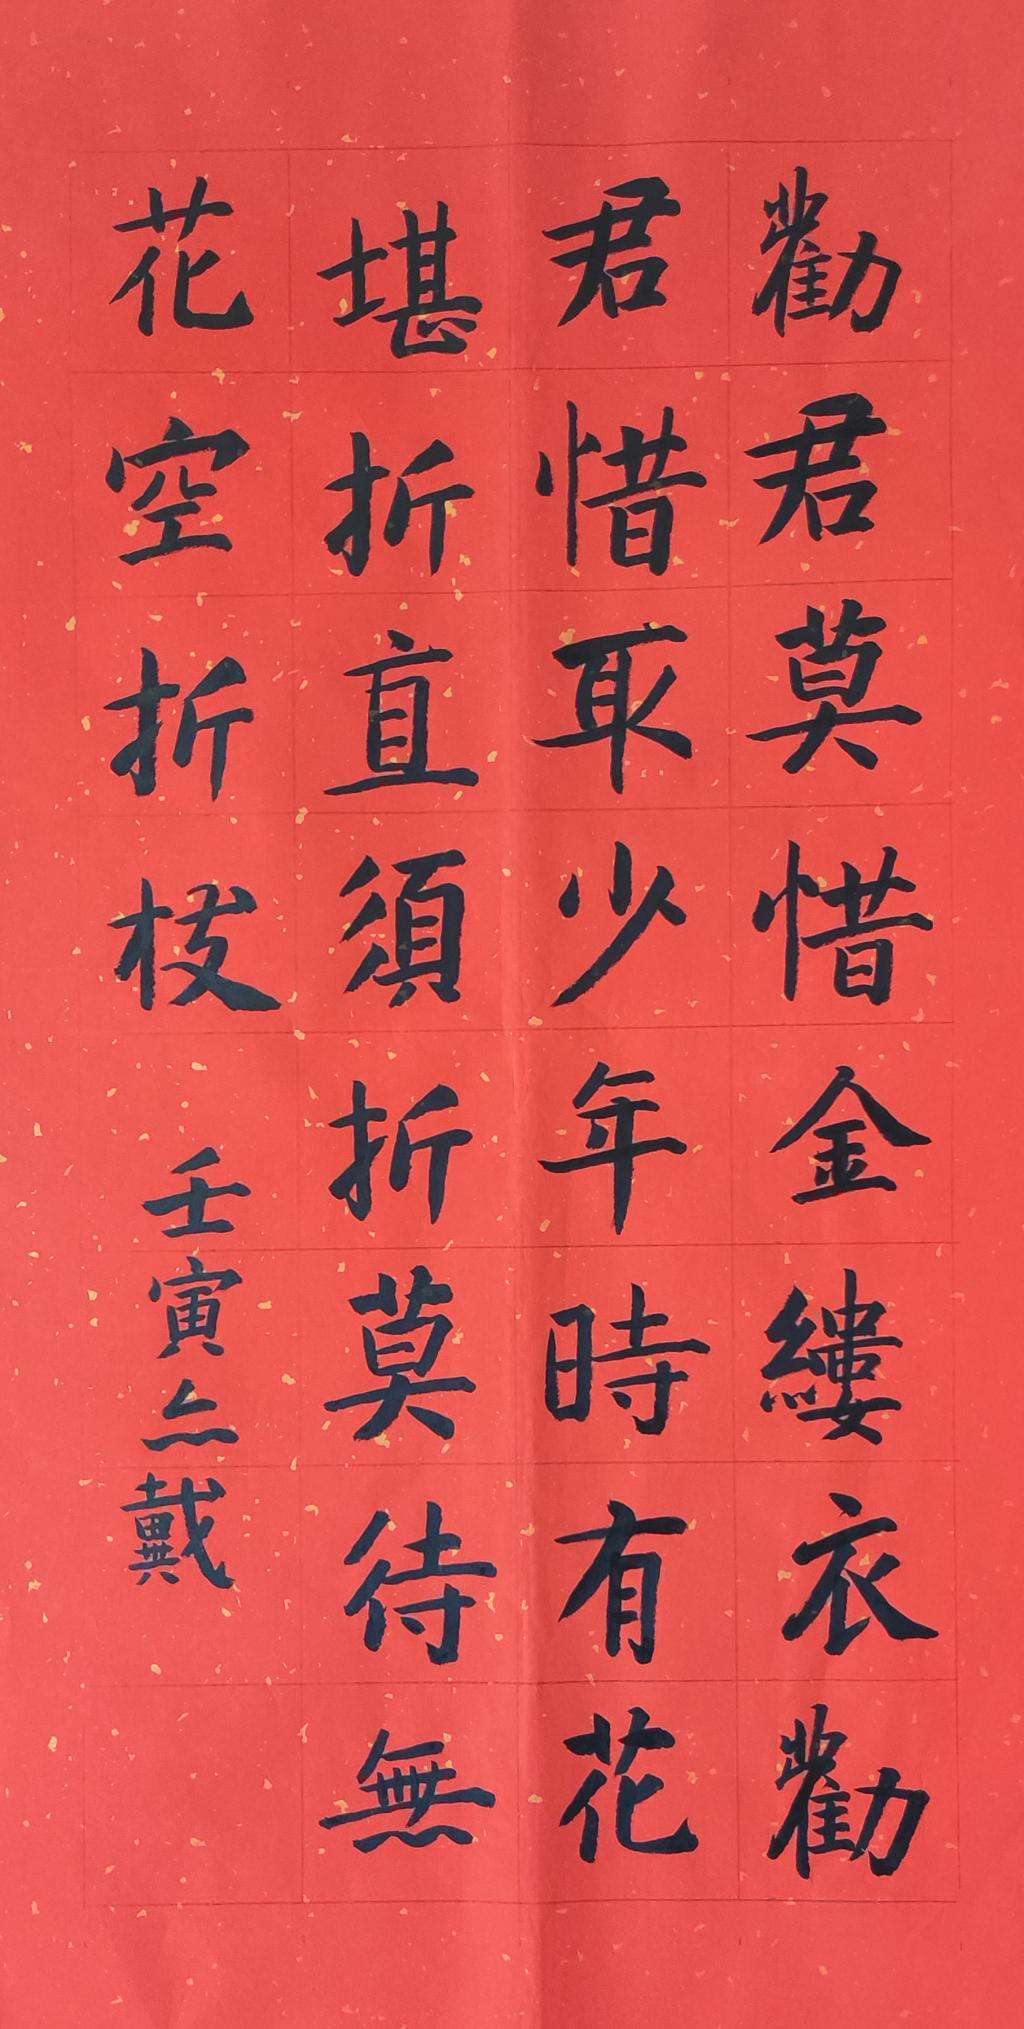 勸君莫惜金縷衣勸
君惜取少年時有花
堪折直須折莫待無
花空折枝 壬寅亼戴